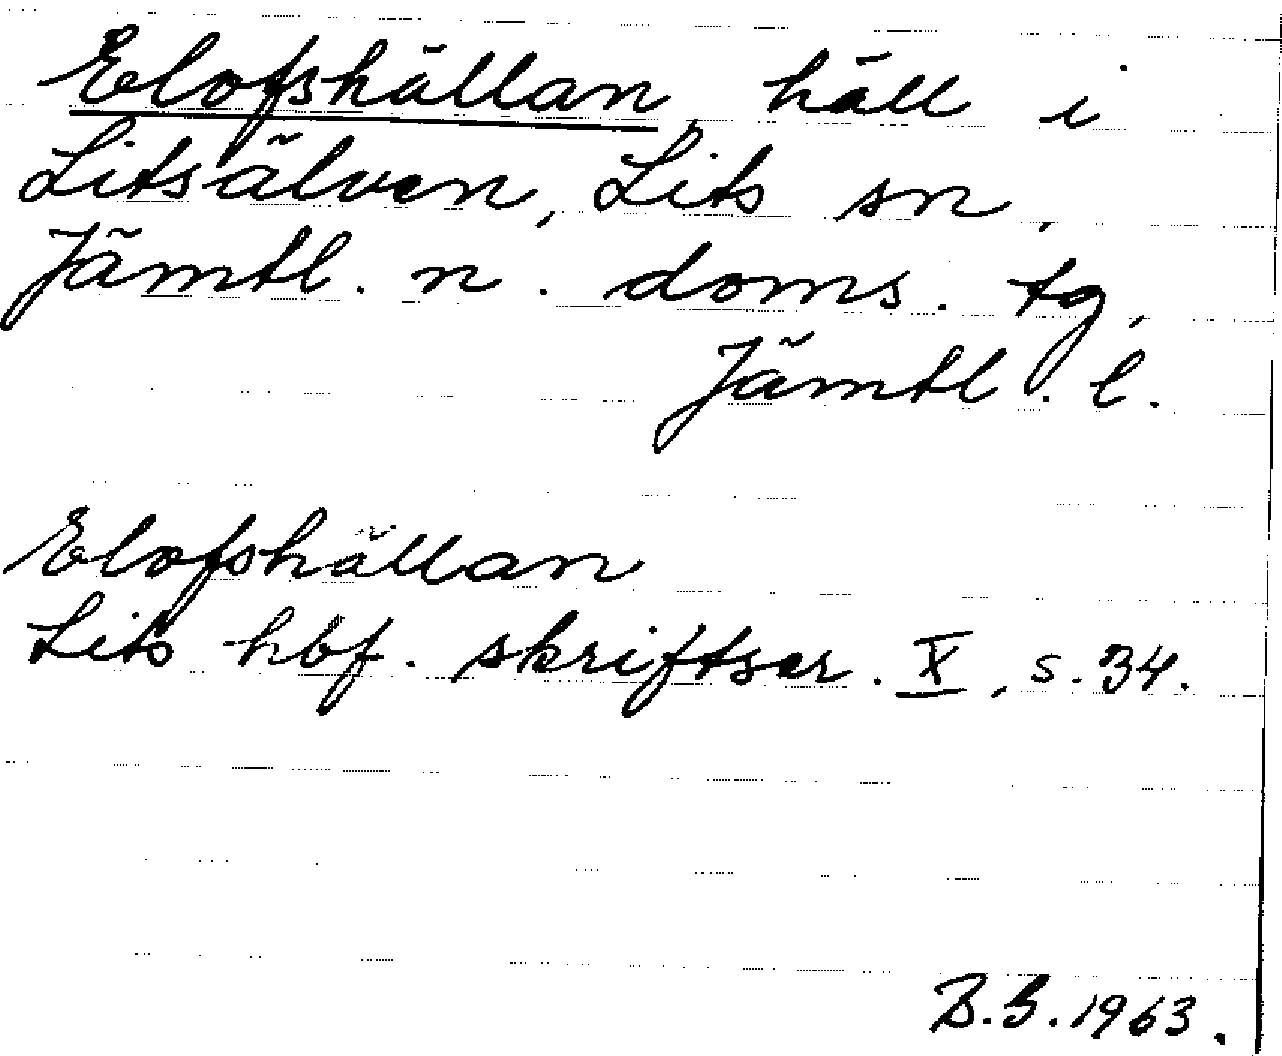 Elofshällan, häll i
Litsälven, Lits sn,
Jämtl. n. doms. tg,
Jämtl. l.
Elofshällan
Lits hbf. skriftser. X, s. 34.
B.S. 1963.